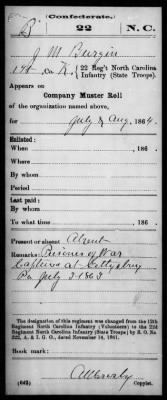 (Confederate.)
B 22 N. C.
J M Burgin
Co. K, 22 Reg't North Carolina
Infantry (State Troops)
Appears on
Company Muster Roll
of the organization named above,
for July & Aug, 1864.
Enlisted:
When , 186 .
Where
By whom
Period
Last paid:
By whom
To what time , 186 .
Present or absent Absent
Remarks: Prisoner of War
Captured at Gettysburg
Pa July 3 1863
The designation of this regiment was changed from the 12th
Regiment North Carolina Infantry (Volunteers) to the 22d
Regiment North Carolina Infantry (State Troops) by S. O. No
222, A. & I. G. O., dated November 14, 1861.
Book mark:
(642) Copyist.